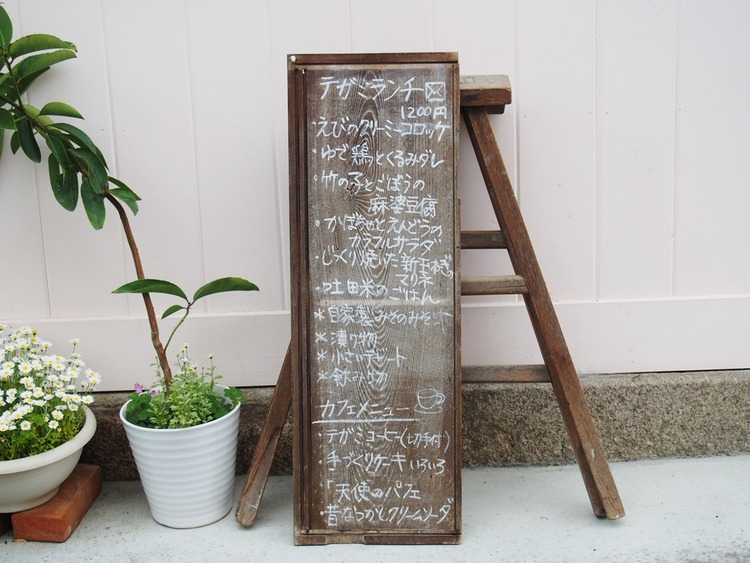 テガミランチ
1200円
・えびのクリーミーコロッケ
・ゆで鶏とくるみダレ
・竹の子とごぼうの
麻婆豆腐
・かぼちゃとえんどうの
カラフルサラダ
・じっくり焼いた新玉ねぎの
マリネ
・吐田米のごはん
＊自家製みそのみそ汁
＊漬け物
＊小さなデザート
＊飲み物
カフェメニュー
・テガミコーヒー(切手付)
・手づくりケーキいろいろ
・「天使のパフェ
・昔なつかしクリームソーダ